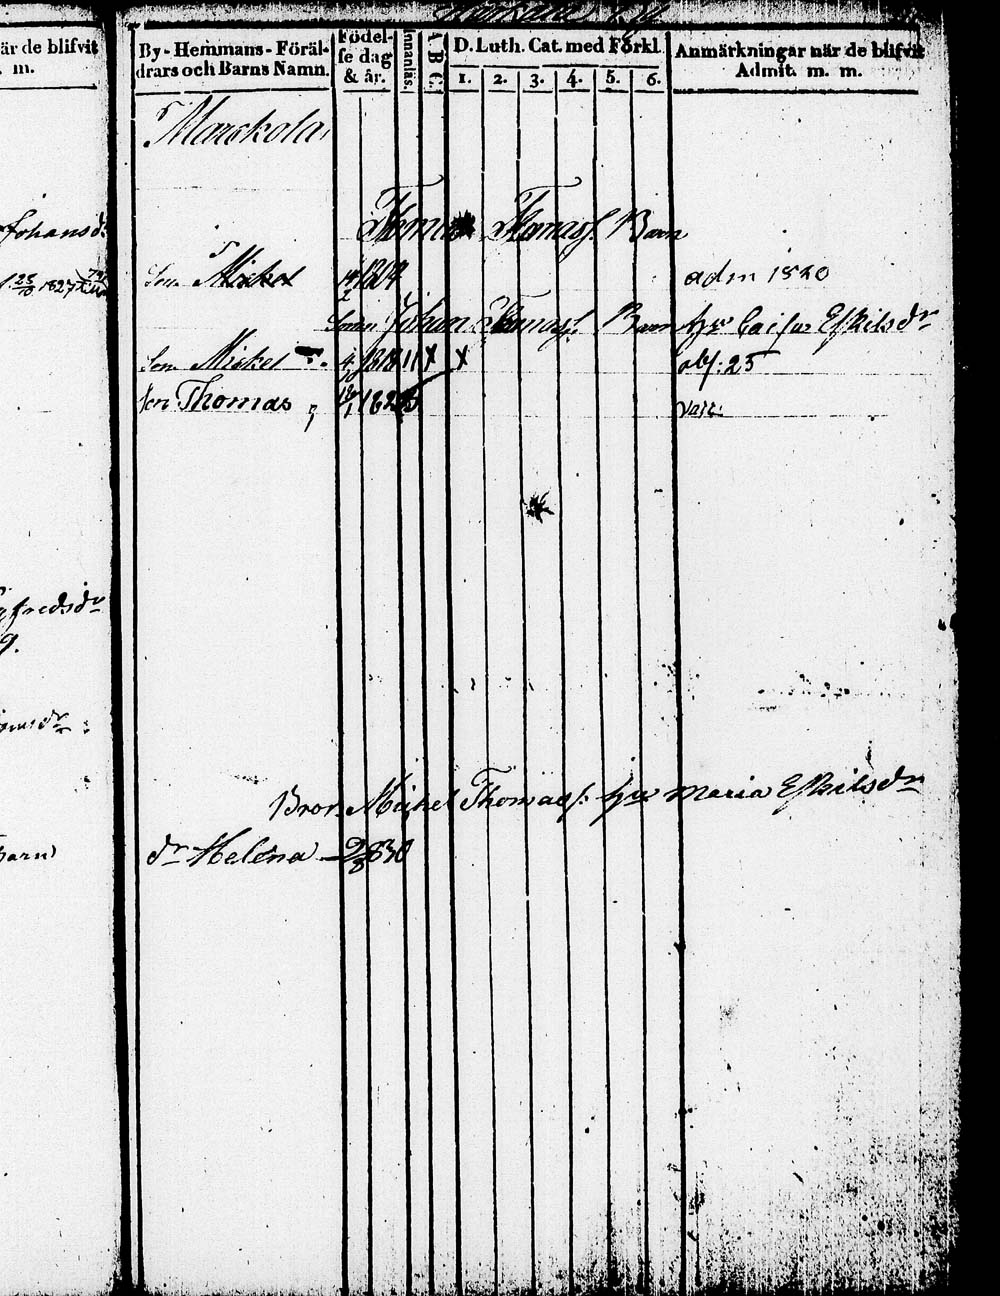 är de blifvit
. m.
Johansdr
1827
fredsdr
9.
barn
By-Hemmans-Föräl-
drars och Barns Namn.
Födel-
se dag
& år.
Innanläs.
A B C.
D. Luth. Cat. med Förkl.
1. 2. 3. 4. 5. 6.
Anmärkningar när de blifvit
Admit. m. m.
Marskola
Thomas Thomass. Barn
Son Mickel adm 1820
Sonen Johan Thomass. Barn hu Caisa Eskilsdr
Son Mickel 4/10 1818 11 x x abs: 25
Son Thomas vacc:
Bror Michel Thomass. hu Maria Eskilsdr
dr Helena 2/8 830